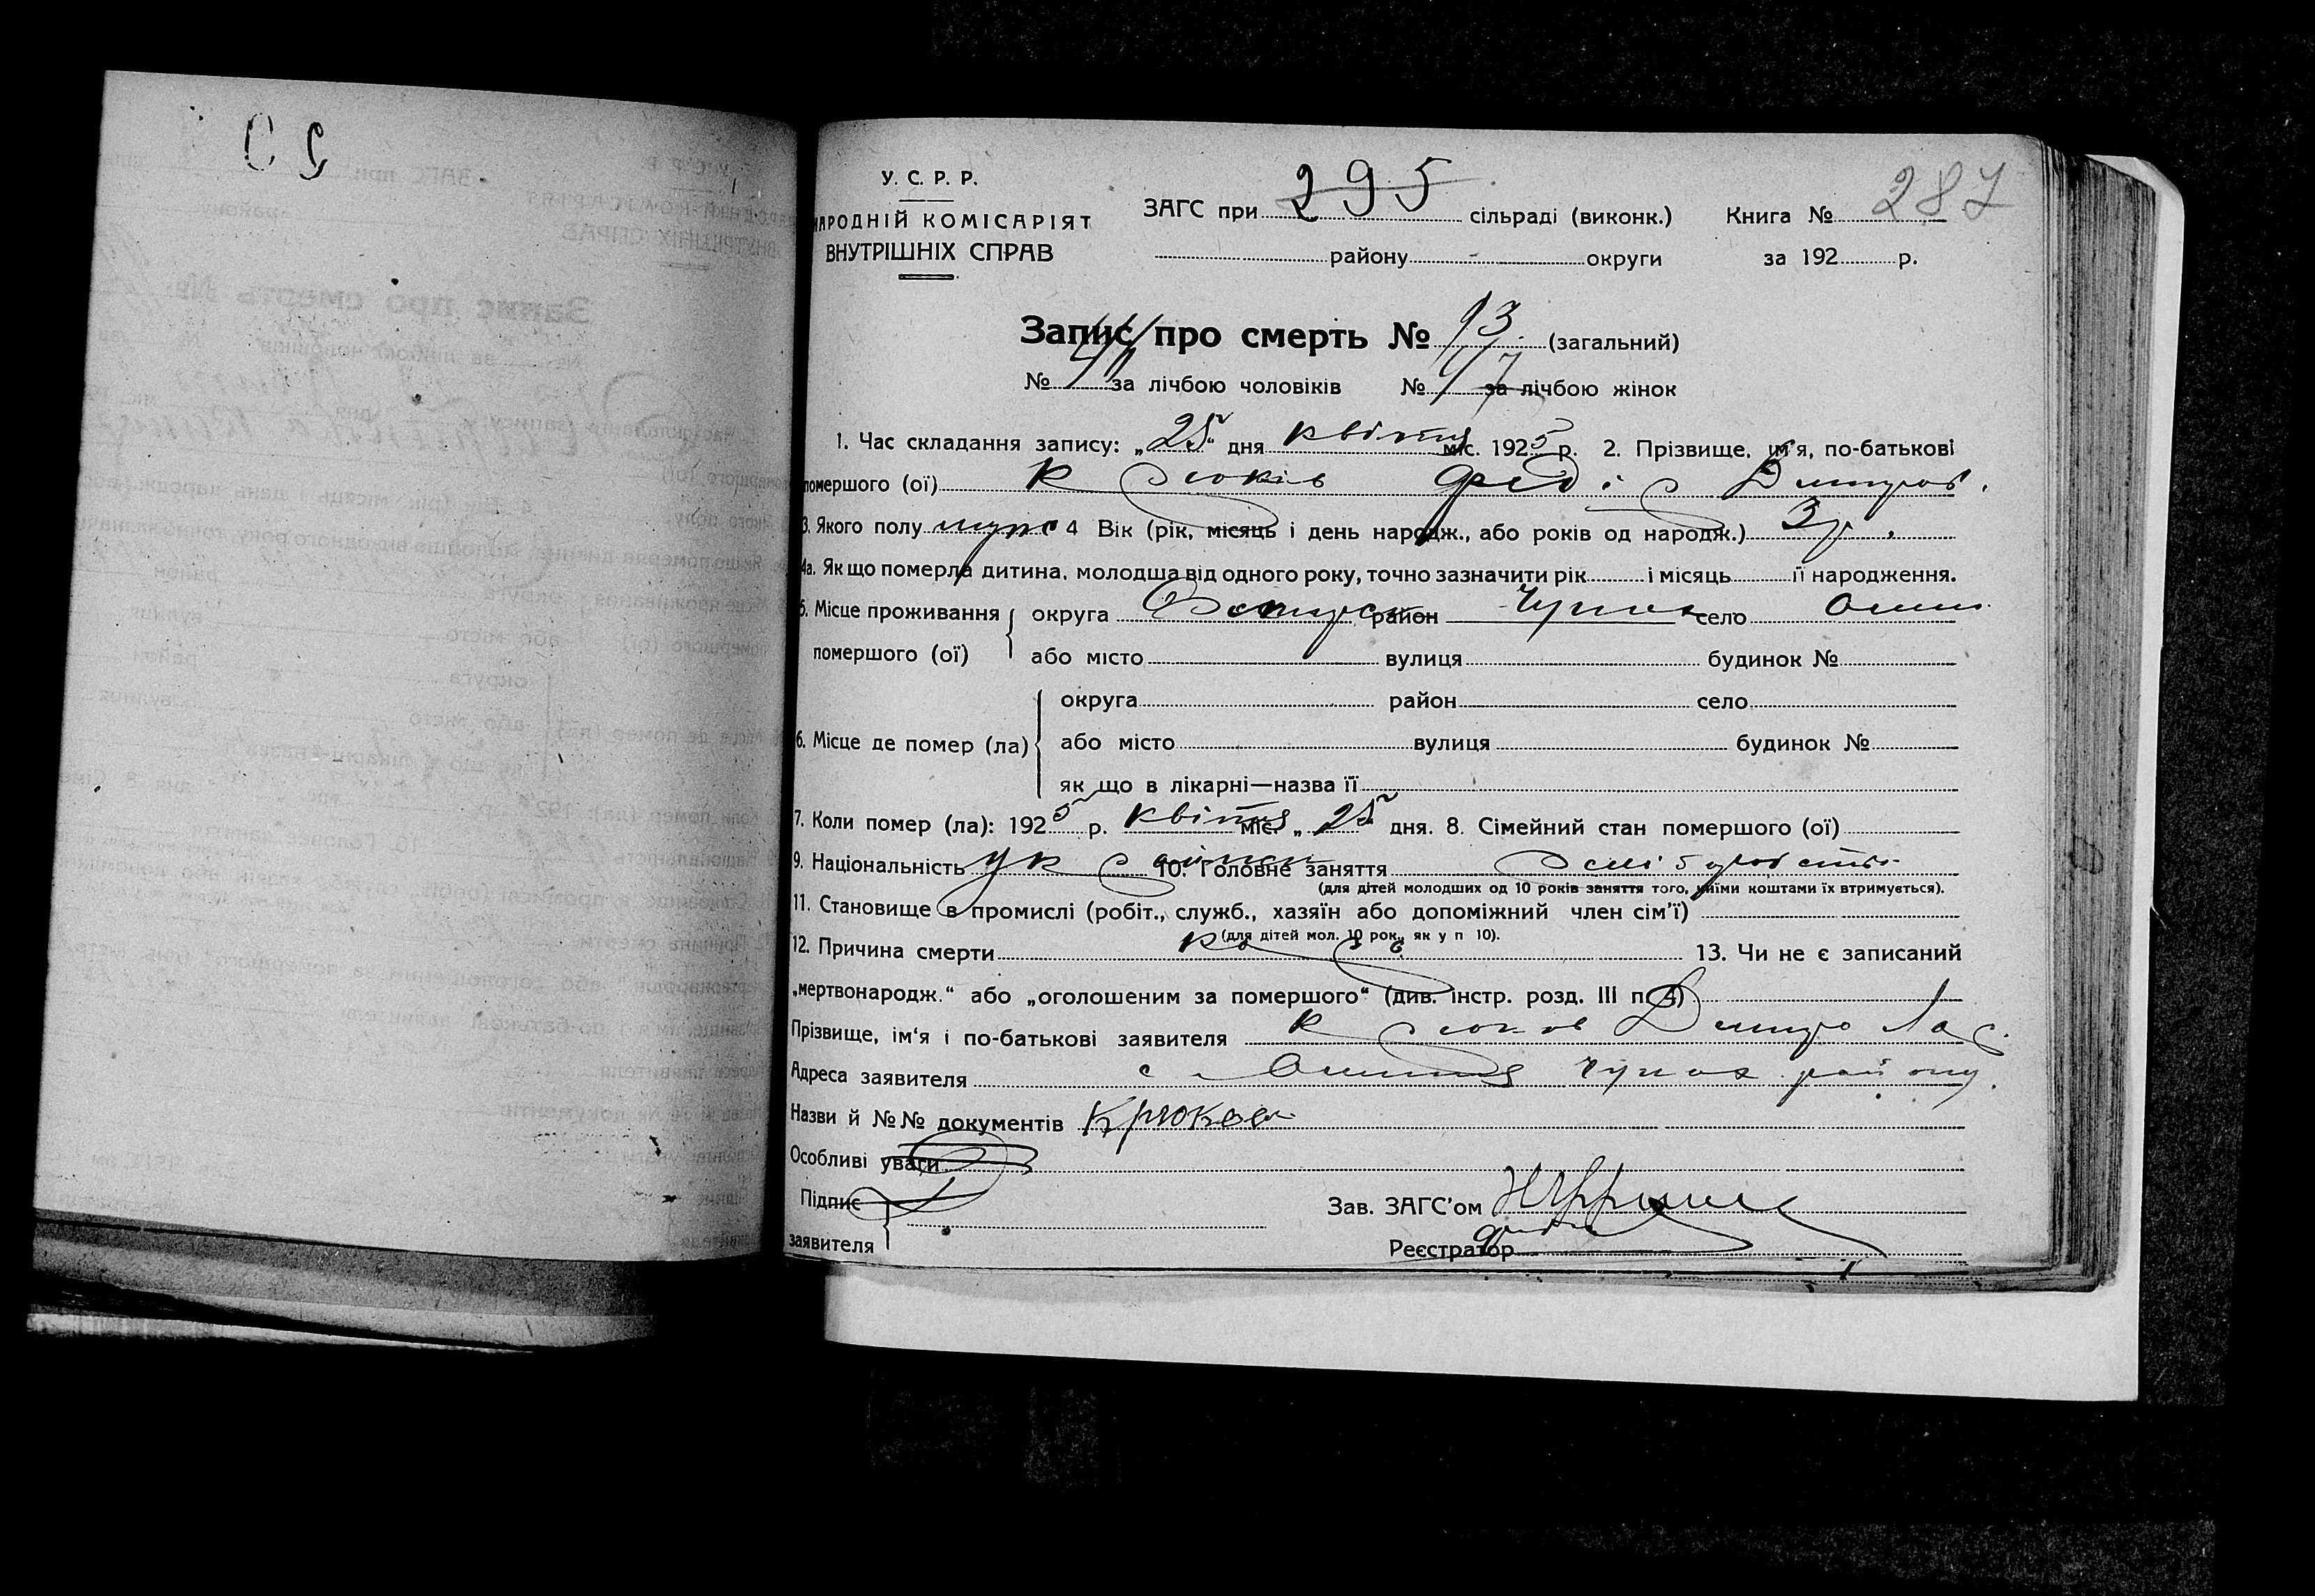 У. С. Р. Р.
НАРОДНІЙ КОМІСАРІЯТ
ВНУТРІШНІХ СПРАВ
ЗАГС при 295 сільраді (виконк.) Книга № 287
району округи за 192 р.
Запис про смерть № 13 (загальний)
№ за лічбою чоловіків № за лічбою жінок
1. Час складання запису: „25“ дня квітня міс. 1925 р. 2. Прізвище, ім'я, по-батькові
помершого (ої) Крюків Федір Дмитров.
3. Якого полу муж 4 Вік (рік, місяць і день народж., або років од народж.) 3 р.
4а. Як що померла дитина, молодша від одного року, точно зазначити рік і місяць її народження.
5. Місце проживання округа район село
помершого (ої) або місто вулиця будинок №
округа район село
6. Місце де помер (ла) або місто вулиця будинок №
як що в лікарні—назва її
7. Коли помер (ла): 1925 р. квітня міс. „25“ дня. 8. Сімейний стан помершого (ої)
9. Національність україн 10. Головне заняття хліборобство
(для дітей молодших од 10 років заняття того, чиїми коштами їх втримується).
11. Становище в промислі (робіт., служб., хазяїн або допоміжний член сім'ї)
(для дітей мол. 10 рок., як у п 10).
12. Причина смерти кір 13. Чи не є записаний
„мертвонародж.“ або „оголошеним за помершого“ (див. інстр. розд. III п. 4)
Прізвище, ім'я і по-батькові заявителя Крюков Дмитро
Адреса заявителя с району.
Назви й №№ документів Крюков
Особливі уваги
Підпис
заявителя
Зав. ЗАГС'ом
Реєстратор